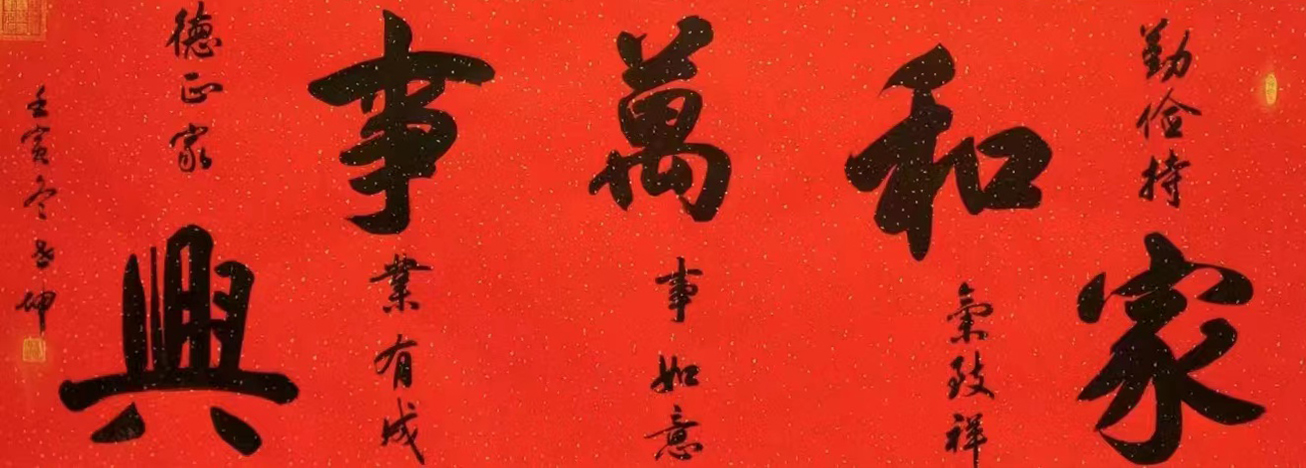 勤俭持家
和氣致祥
萬事如意
事業有成
德正家興
壬寅冬昌坤